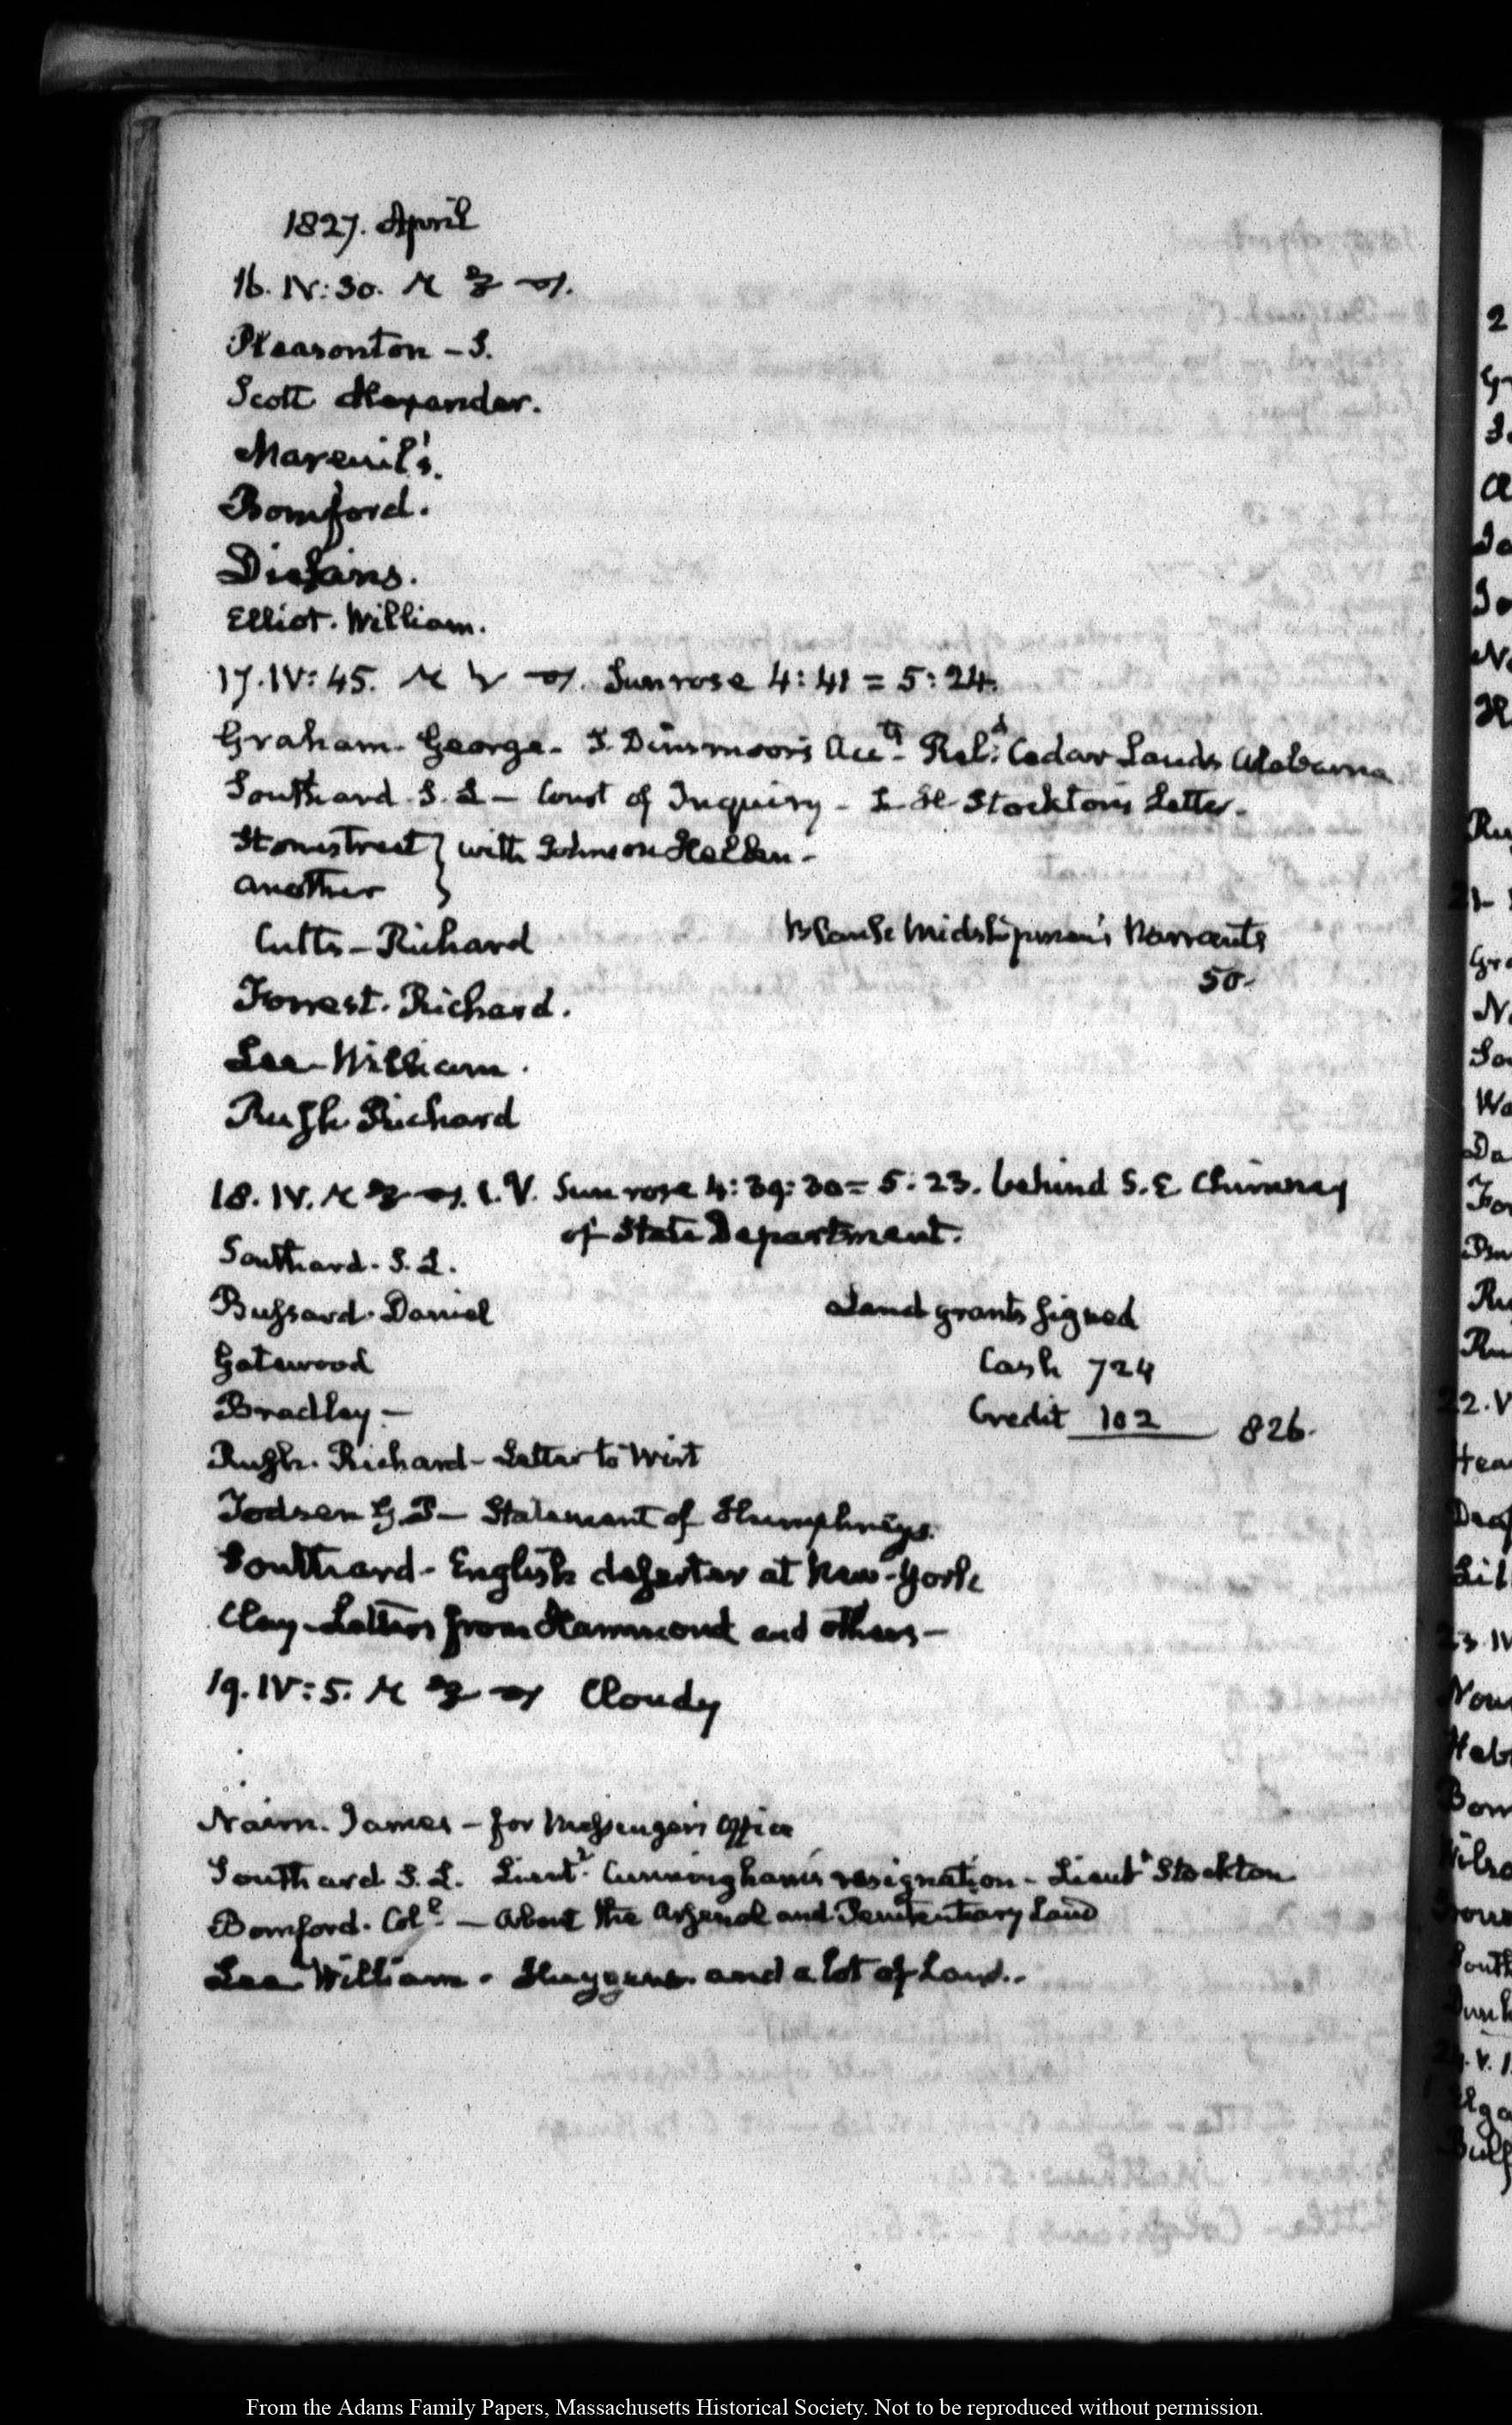 1827. April
16. IV:30.
Pleasonton - S.
Scott Alexander.
Mareuil's.
Bomford.
Dickins.
Elliot. William.
17. IV: 45. Sun rose 4:41 = 5:24.
Graham. George. Dinsmoor's Acct. Cedar Lands Alabama
Southard. S. L - Court of Inquiry - Stockton's Letter.
Stonestreet } with Johnson Hellen -
another }
Cutts - Richard
Blank Midshipmen's Warrants
50.
Forrest. Richard.
Lee - William.
Rush. Richard
18. IV. I. V. Sun rose 4:39:30 = 5:23. behind S.E Chimney
of State Department.
Southard. S. L.
Bussard. Daniel
Land grants signed
Gatewood
Cash 724
Bradley -
Credit 102 826.
Rush. Richard - Letter to Wirt
Todsen G. P - Statement of Humphreys.
Southard - English deserter at New-York
Clay - Letters from Hammond and others -
19. IV: 5. Cloudy
Nairn. James - for Messenger's Office
Southard S. L. Lieutt. Cunningham's resignation - Lieutt Stockton
Bomford. Coll. - About the Arsenal and Penitentiary Land
Lee William. Huygens. and a lot of Land..
From the Adams Family Papers, Massachusetts Historical Society. Not to be reproduced without permission.